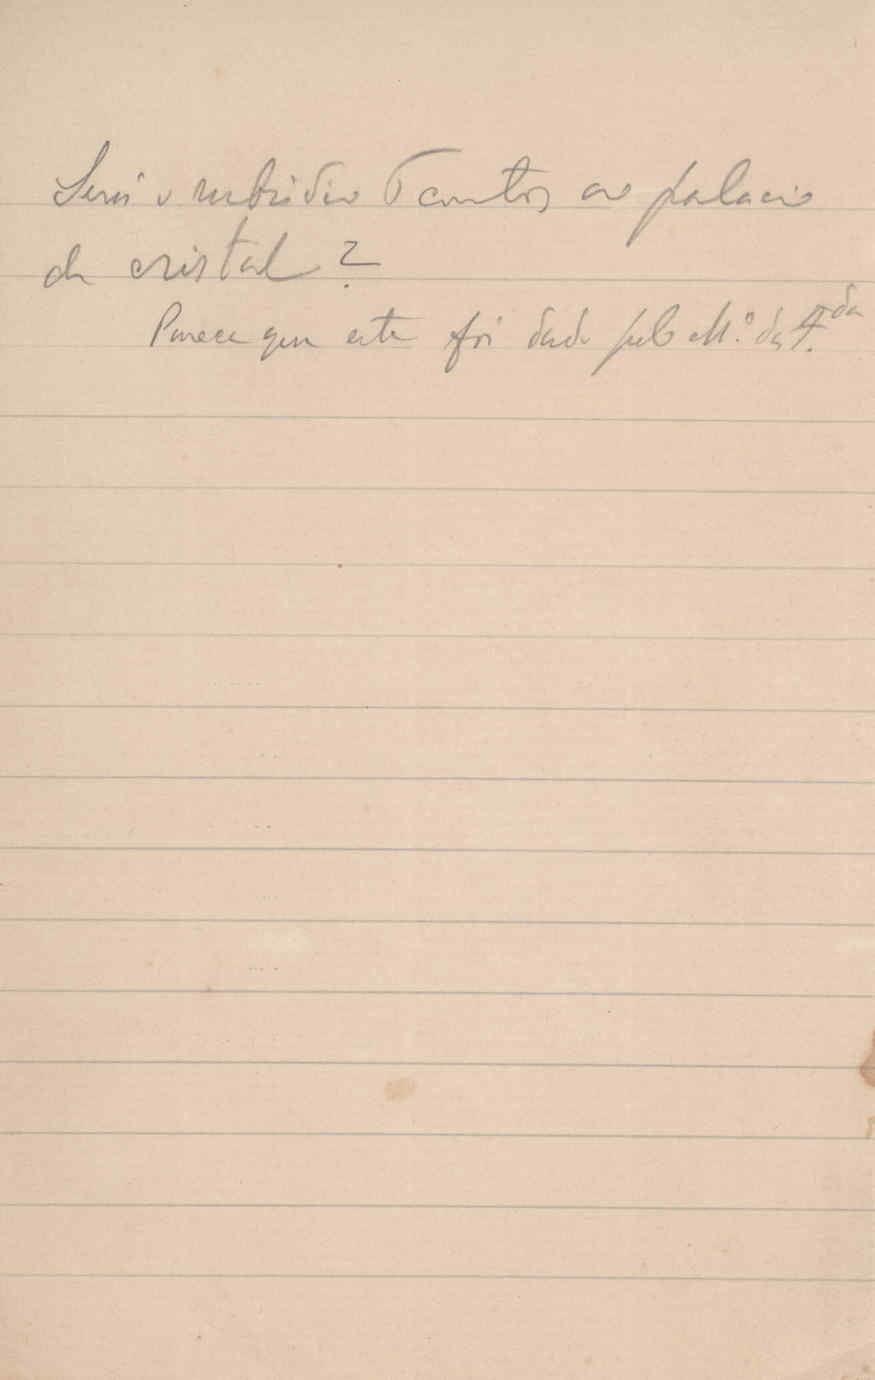 Será o subsidio 6 contos ao palacio
de cristal?
Parece que este foi dado pelo M.º da F.da